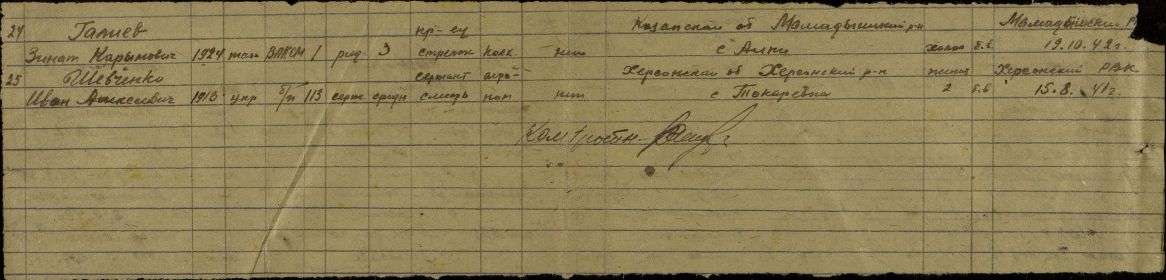 24 Галиев кр-ец Казанской об Мамадышский р-н Мамадышский Р
Зинат Карымович 1924 тат ВЛКСМ 1 ряд 3 стрелок колх. нет с Алки холост б.в 19.10.42г.
25 Шевченко сержант агро- Херсонская об Херсонский р-н женат Херсонский РВК
Иван Алексеевич 1913 укр б/п 113 серж средн ном нет с Токаревка 2 б.в 15.8.41г.
Ком 1 роты